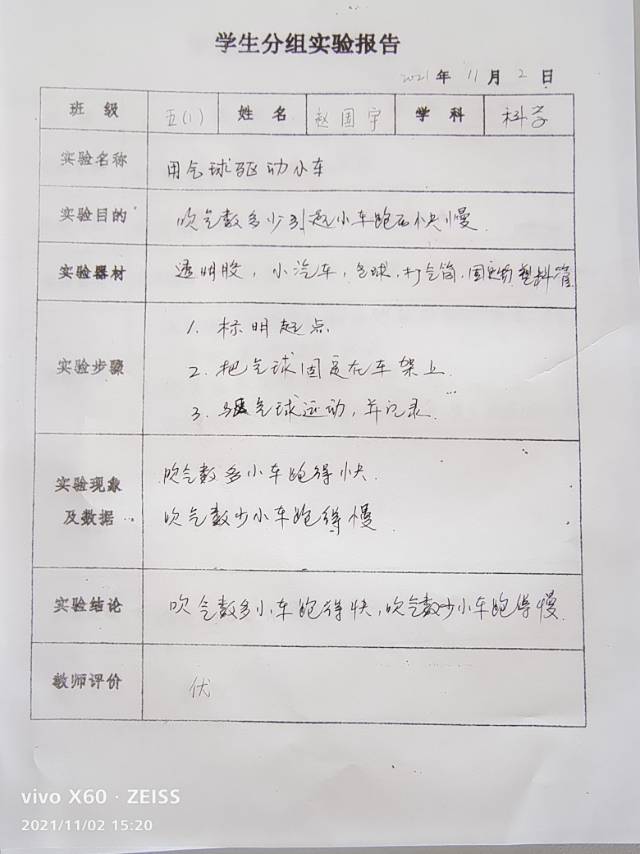 学生分组实验报告
2021年 11月 2日
班级 五(1) 姓名 赵国宇 学科 科学
实验名称 用气球驱动小车
实验目的 吹气数多少引起小车跑 快慢
实验器材 透明胶，小汽车，气球，打气筒，塑料管
实验步骤
1. 标明起点
2. 把气球固定在车架上
3. 气球运动，并记录
实验现象及数据
吹气数多小车跑得快
吹气数少小车跑得慢
实验结论 吹气数多小车跑得快，吹气数少小车跑得慢.
教师评价 伏
vivo X60 · ZEISS
2021/11/02 15:20